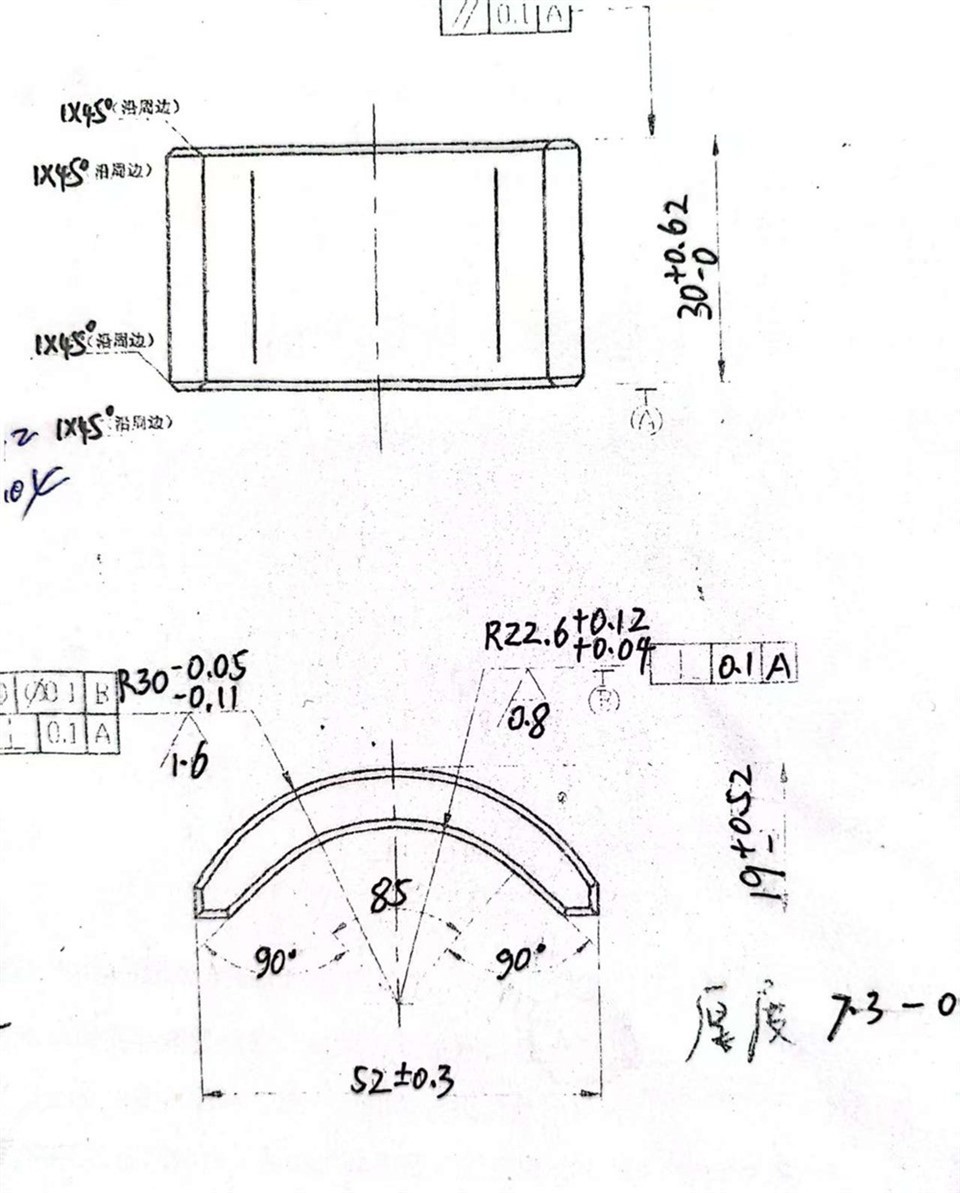 // 0.1 A
1X45°(沿周边)
1X45° 沿周边)
30+0.62
-0
1X45°(沿周边)
(A)
1X45° 沿周边)
R22.6+0.12
+0.04
⊥ 0.1 A
(B)
0.8
R30-0.05
-0.11
B
⊥ 0.1 A
1.6
19+0.52
-
85
90°
90°
厚度 7.3-0
52±0.3